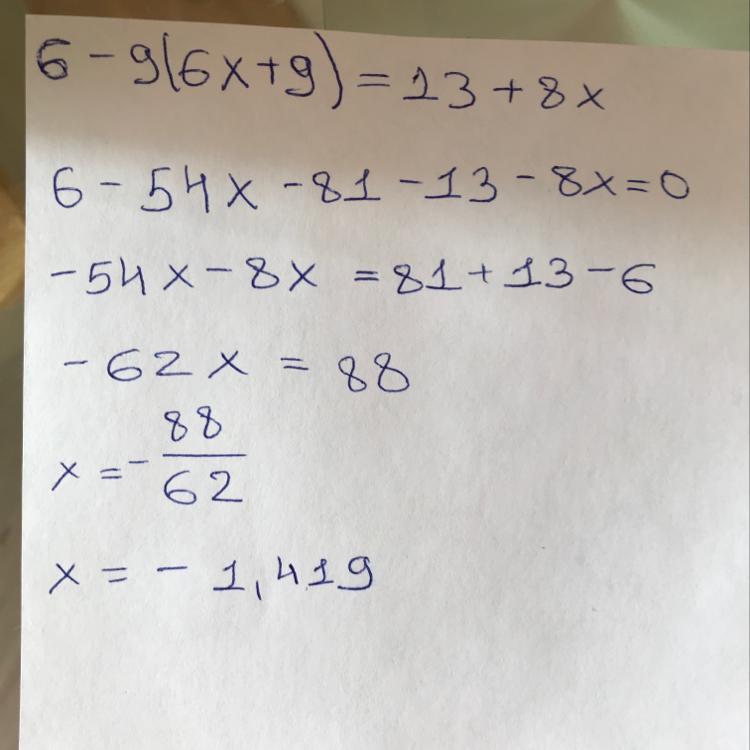 6 - 9(6x+9) = 13 + 8x
6 - 54x - 81 - 13 - 8x = 0
-54x - 8x = 81 + 13 - 6
-62x = 88
x = - 88/62
x = - 1,419